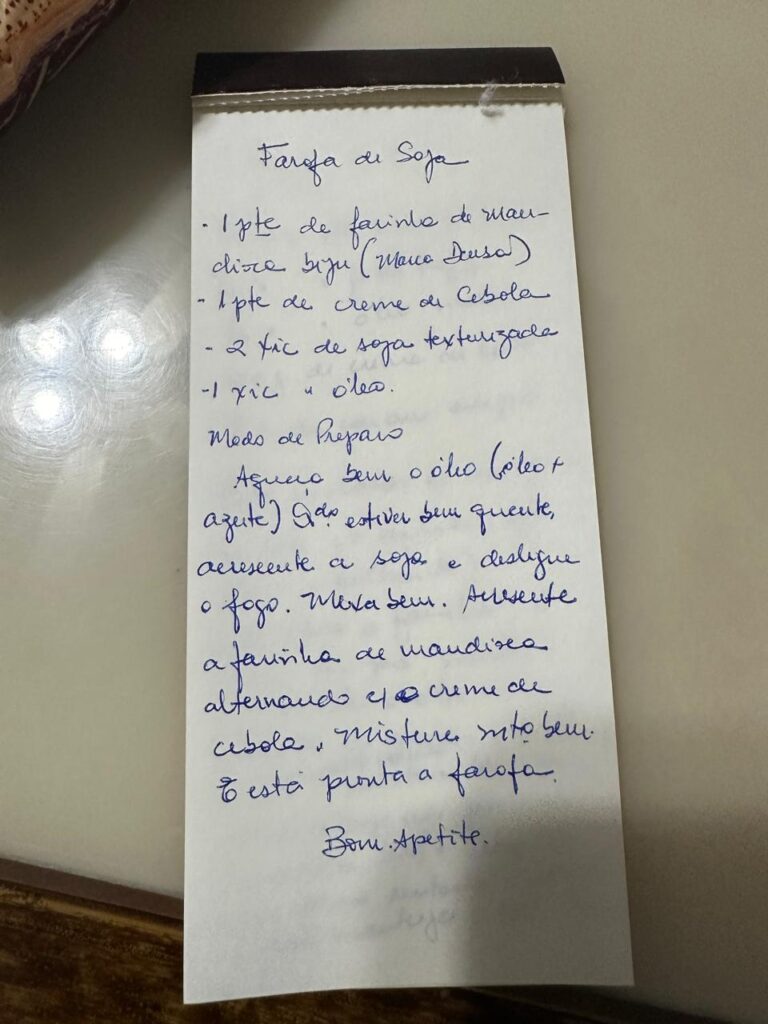 Farofa de Soja
- 1 pte de farinha de man-
dioca biju (Marca Deusa)
- 1 pte de creme de Cebola
- 2 xic de soja texturizada
- 1 xic " óleo.
Modo de Preparo
Aqueça bem o óleo (óleo +
azeite) Qdo estiver bem quente,
acrescente a soja e desligue
o fogo. Mexa bem. Acrescente
a farinha de mandioca
alternando c/ o creme de
cebola. Misture mto bem.
E está pronta a farofa.
Bom Apetite.